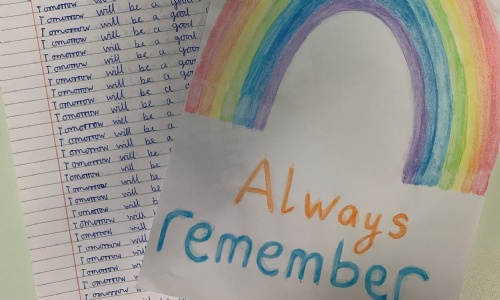 Tomorrow will be a good
Tomorrow will be a good
Tomorrow will be a good
Tomorrow will be a good
Tomorrow will be a good
Tomorrow will be a
Tomorrow will be a
Tomorrow will be a
Tomorrow will be a
Tomorrow will be a
Tomorrow will be a
Tomorrow will be a
Tomorrow will be a
Tomorrow will be
Tomorrow will be
Tomorrow will be
Tomorrow will
Tomorrow will
Tomorrow will
Tomorrow will
Tomorrow
Tomorrow
Always
remember